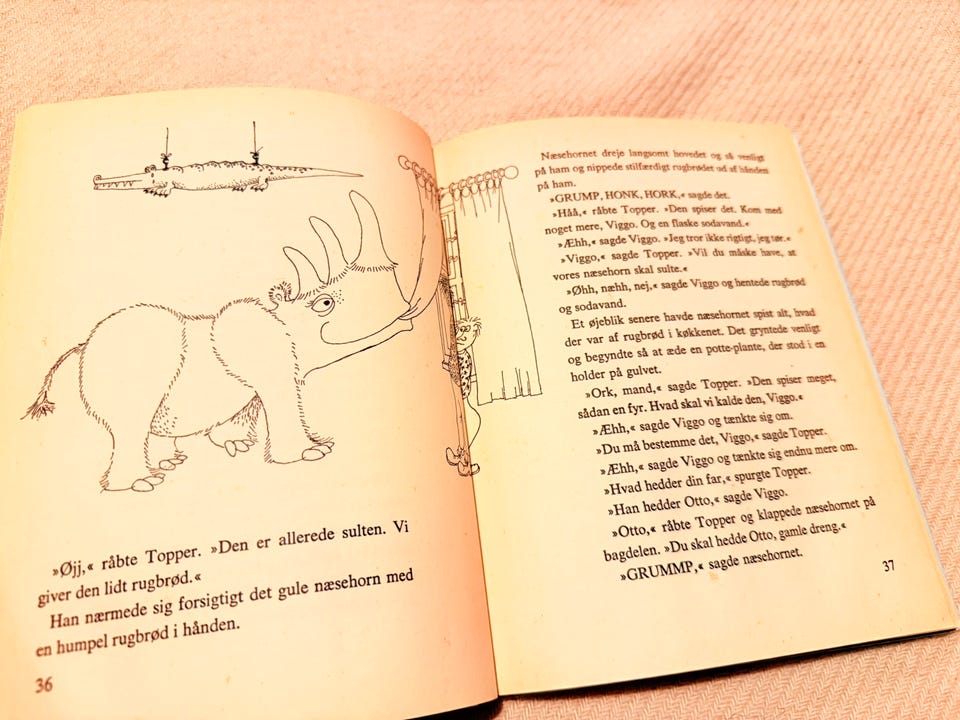 »Øjj,« råbte Topper. »Den er allerede sulten. Vi
giver den lidt rugbrød.«
Han nærmede sig forsigtigt det gule næsehorn med
en humpel rugbrød i hånden.
36
Næsehornet dreje langsomt hovedet og så venligt
på ham og nippede stilfærdigt rugbrødet ud af hånden
på ham.
»GRUMP, HONK, HORK,« sagde det.
»Håå,« råbte Topper. »Den spiser det. Kom med
noget mere, Viggo. Og en flaske sodavand.«
»Æhh,« sagde Viggo. »Jeg tror ikke rigtigt, jeg tør.«
»Viggo,« sagde Topper. »Vil du måske have, at
vores næsehorn skal sulte.«
»Øhh, næhh, nej,« sagde Viggo og hentede rugbrød
og sodavand.
Et øjeblik senere havde næsehornet spist alt, hvad
der var af rugbrød i køkkenet. Det gryntede venligt
og begyndte så at æde en potte-plante, der stod i en
holder på gulvet.
»Ork, mand,« sagde Topper. »Den spiser meget,
sådan en fyr. Hvad skal vi kalde den, Viggo.«
»Æhh,« sagde Viggo og tænkte sig om.
»Du må bestemme det, Viggo,« sagde Topper.
»Æhh,« sagde Viggo og tænkte sig endnu mere om.
»Hvad hedder din far,« spurgte Topper.
»Han hedder Otto,« sagde Viggo.
»Otto,« råbte Topper og klappede næsehornet på
bagdelen. »Du skal hedde Otto, gamle dreng.«
»GRUMMP,« sagde næsehornet.
37